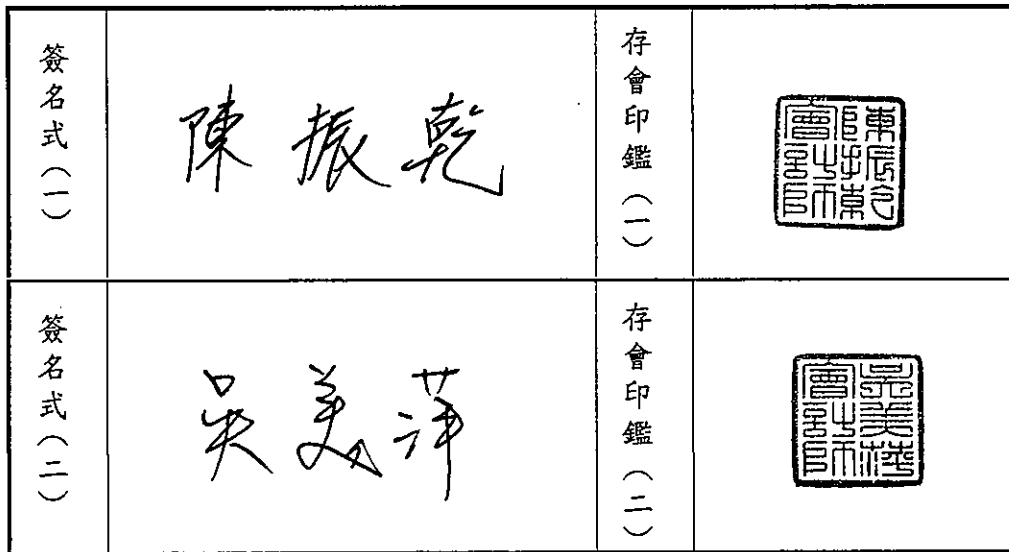 簽名式(一)
陳振乾
存會印鑑(一)
陳振乾
會計師
簽名式(二)
吳美萍
存會印鑑(二)
吳美萍
會計師